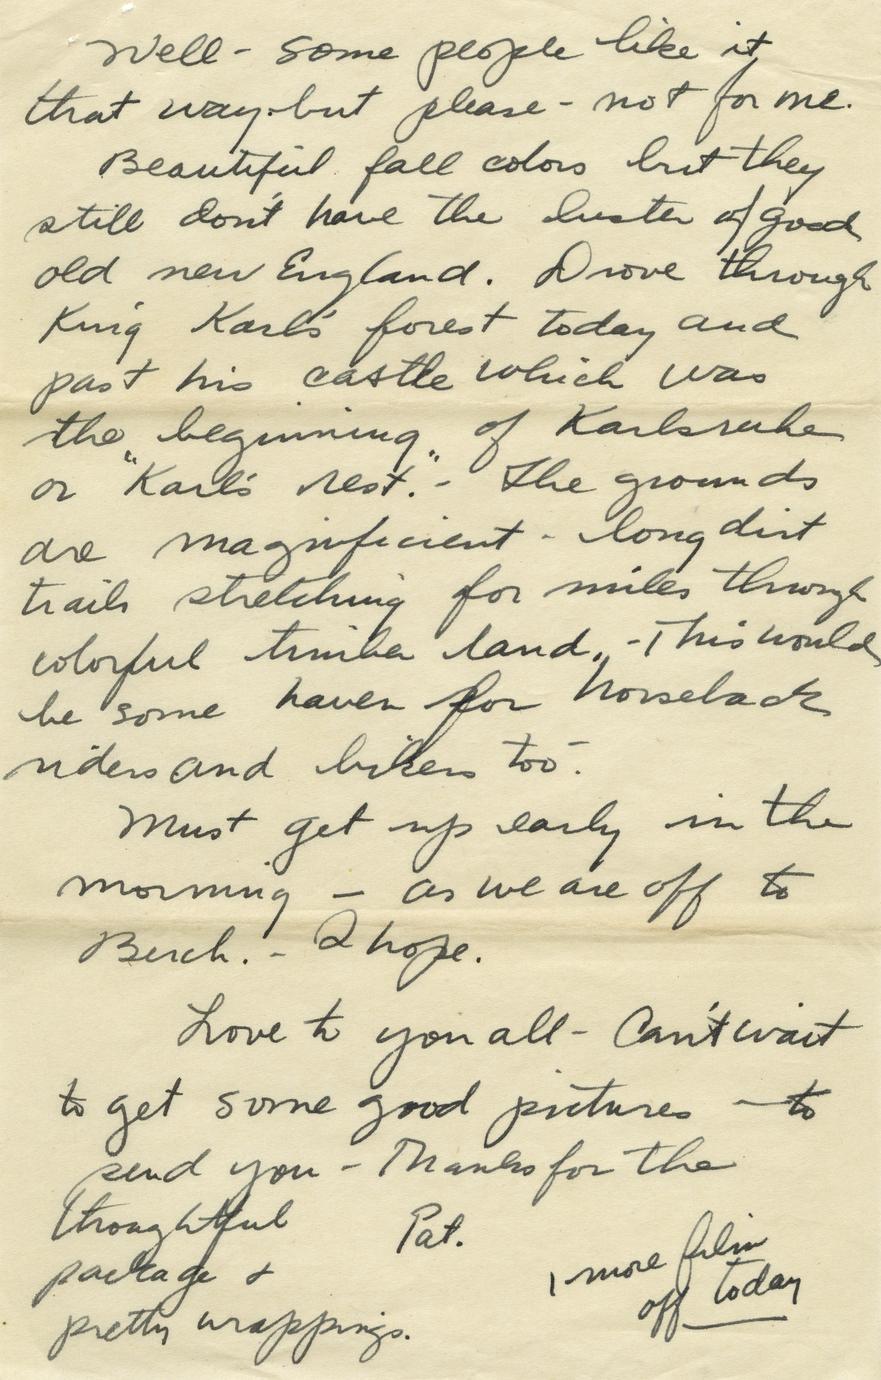 Well - some people like it
that way - but please - not for me.
Beautiful fall colors but they
still don't have the luster of good
old new England. Drove through
King Karl's forest today and
past his castle which was
the "beginning" of Karlsruhe
or "Karl's rest." - The grounds
are magnificient - long dirt
trails stretching for miles through
colorful timber land. - This would
be some haven for horseback
riders and bikers too -.
Must get up early in the
morning - as we are off to
Berch. - I hope.
Love to you all - Can't wait
to get some good pictures - to
send you - Thanks for the
thoughtful
package &
pretty wrappings.
Pat.
1 more film
off today